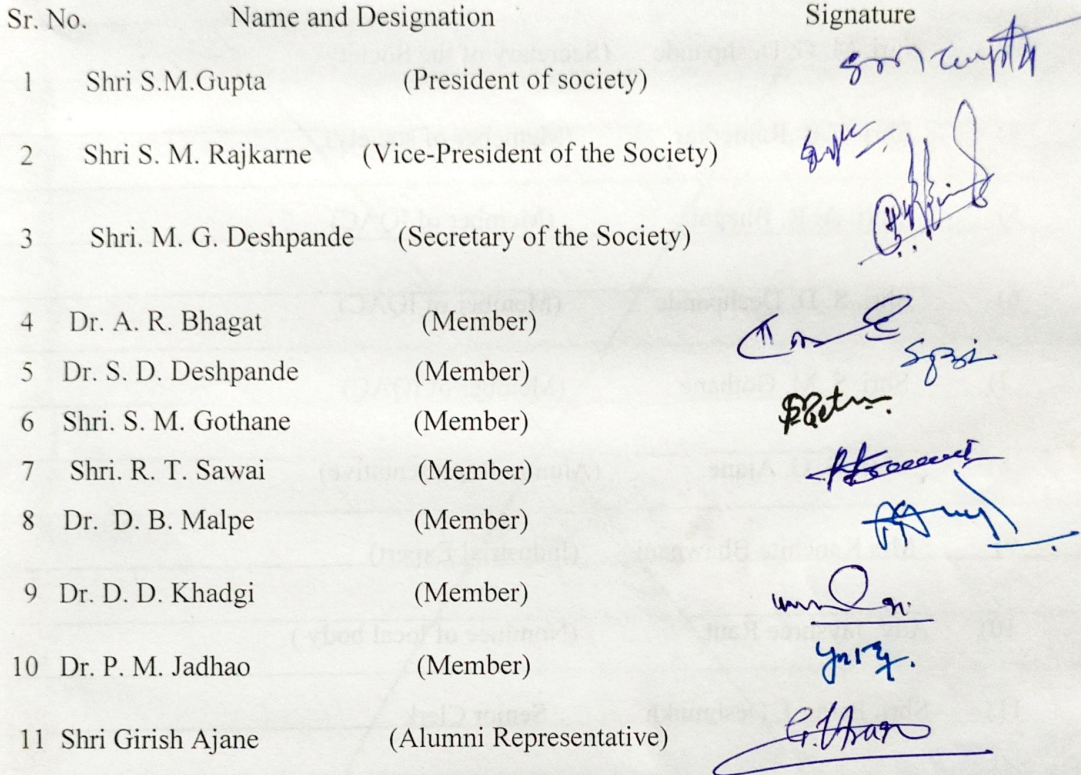 Sr. No. Name and Designation Signature
1 Shri S.M.Gupta (President of society)
2 Shri S. M. Rajkarne (Vice-President of the Society)
3 Shri. M. G. Deshpande (Secretary of the Society)
4 Dr. A. R. Bhagat (Member)
5 Dr. S. D. Deshpande (Member)
6 Shri. S. M. Gothane (Member)
7 Shri. R. T. Sawai (Member)
8 Dr. D. B. Malpe (Member)
9 Dr. D. D. Khadgi (Member)
10 Dr. P. M. Jadhao (Member)
11 Shri Girish Ajane (Alumni Representative)